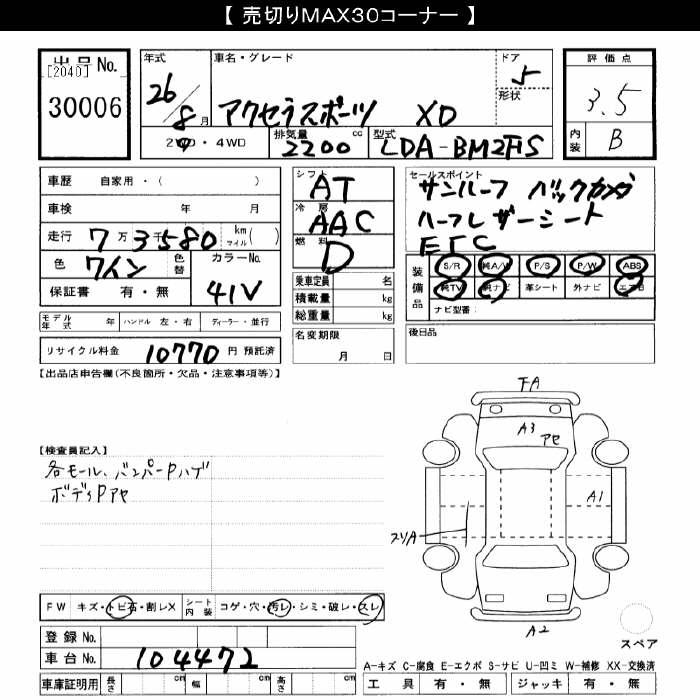 【 売切りMAX30コーナー 】
出品 No. [2040] 30006
年式 26/8 月
車名・グレード アクセラスポーツ XD
ドア 5
形状
評価点 3.5
内装 B
2WD・4WD
排気量 2200 cc
型式 LDA-BM2FS
車歴 自家用・( )
車検 年 月
走行 7万3千580 km マイル ( )
色 ワイン 色替 カラーNo. 41V
保証書 有・無
シフト AT
冷房 AAC
燃料 D
乗車定員 名
積載量 kg
総重量 kg
名変期限 月 日
セールスポイント
サンルーフ バックカメラ
ハーフレザーシート
ETC
装備品 S/R 純A/W P/S P/W ABS
純TV 純ナビ 革シート 外ナビ エアB
ナビ型番:
後日品
モデル年式 年 ハンドル 左・右 ディーラー・並行
リサイクル料金 10770 円 預託済
【出品店申告欄(不良箇所・欠品・注意事項等)】
【検査員記入】
各モール、バンパーPハゲ
ボディPアセ
FA
A3
アセ
A1
スリA
A2
FW キズ・トビ石・割レX シート内装 コゲ・穴・汚レ・シミ・破レ・スレ
スペア
登録 No.
車台 No. 104472
車庫証明用 長さ cm 幅 cm 高さ cm
A-キズ C-腐食 E-エクボ S-サビ U-凹ミ W-補修 XX-交換済
工具 有・無 ジャッキ 有・無